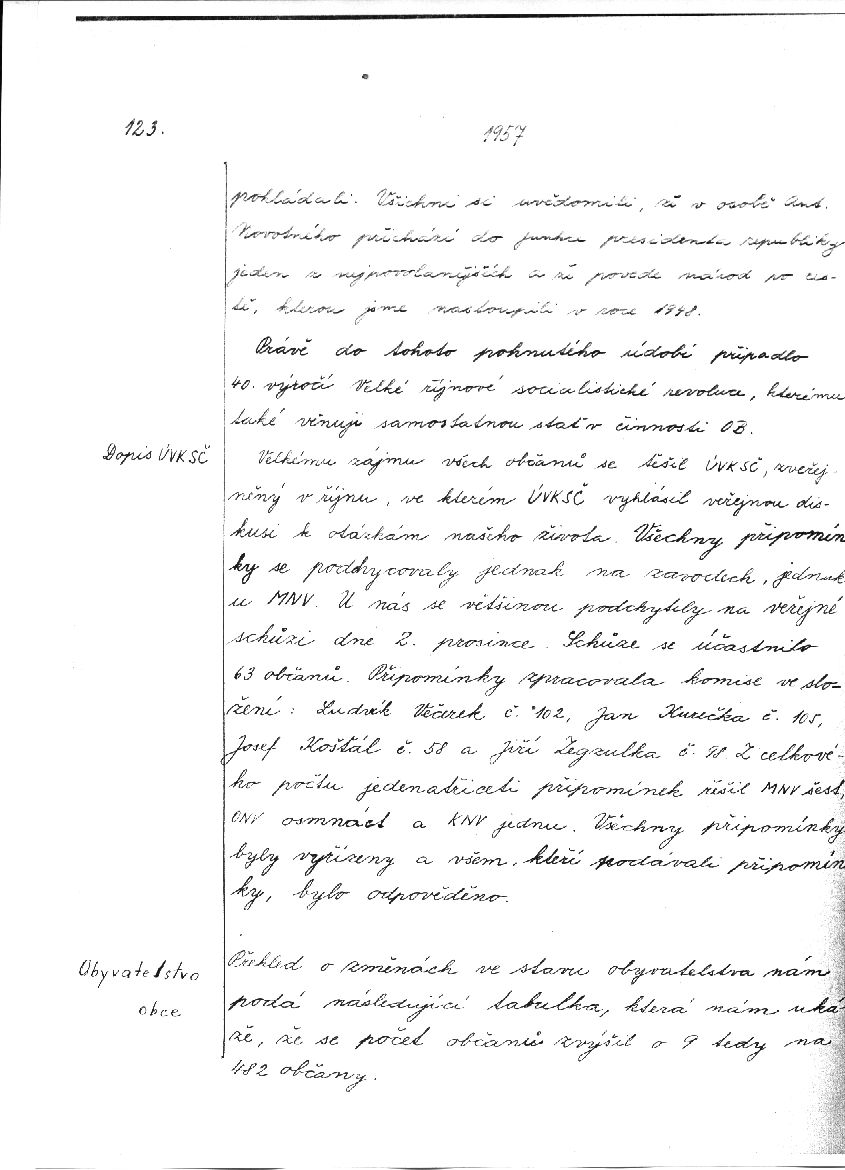 123.
1957
pohládali. Všichni si uvědomili, že v osobě Ant.
Novotného přichází do funkce presidenta republiky
jeden z nejpovolanějších a že povede národ po ces-
tě, kterou jsme nastoupili v roce 1948.
Právě do tohoto pohnutého údobí připadlo
40. výročí Velké říjnové socialistické revoluce, kterému
také věnuji samostatnou stať v činnosti OB.
Dopis ÚVKSČ
Velkému zájmu všech občanů se těšil ÚVKSČ, zveřej-
něný v říjnu, ve kterém ÚVKSČ vyhlásil veřejnou dis-
kusi k otázkám našeho života. Všechny připomín
ky se podchycovaly jednak na zavodech, jednak
u MNV. U nás se většinou podchytily na veřejné
schůzi dne 2. prosince. Schůze se účastnilo
63 občanů. Připomínky zpracovala komise ve slo-
žení: Ludvík Večerek č. 102, Jan Kurečka č. 105,
Josef Košťál č. 58 a Jiří Zegzulka č. 98. Z celkové-
ho počtu jedenatřiceti připomínek řešil MNV šest,
ONV osmnáct a KNV jednu. Všechny připomínky
byly vyřízeny a všem, kteří podávali připomín
ky, bylo odpověděno.
Obyvatelstvo
obce
Přehled o změnách ve stavu obyvatelstva nám
podá následující tabulka, která nám uká
že, že se počet občanů zvýšil o 9 tedy na
482 občany.